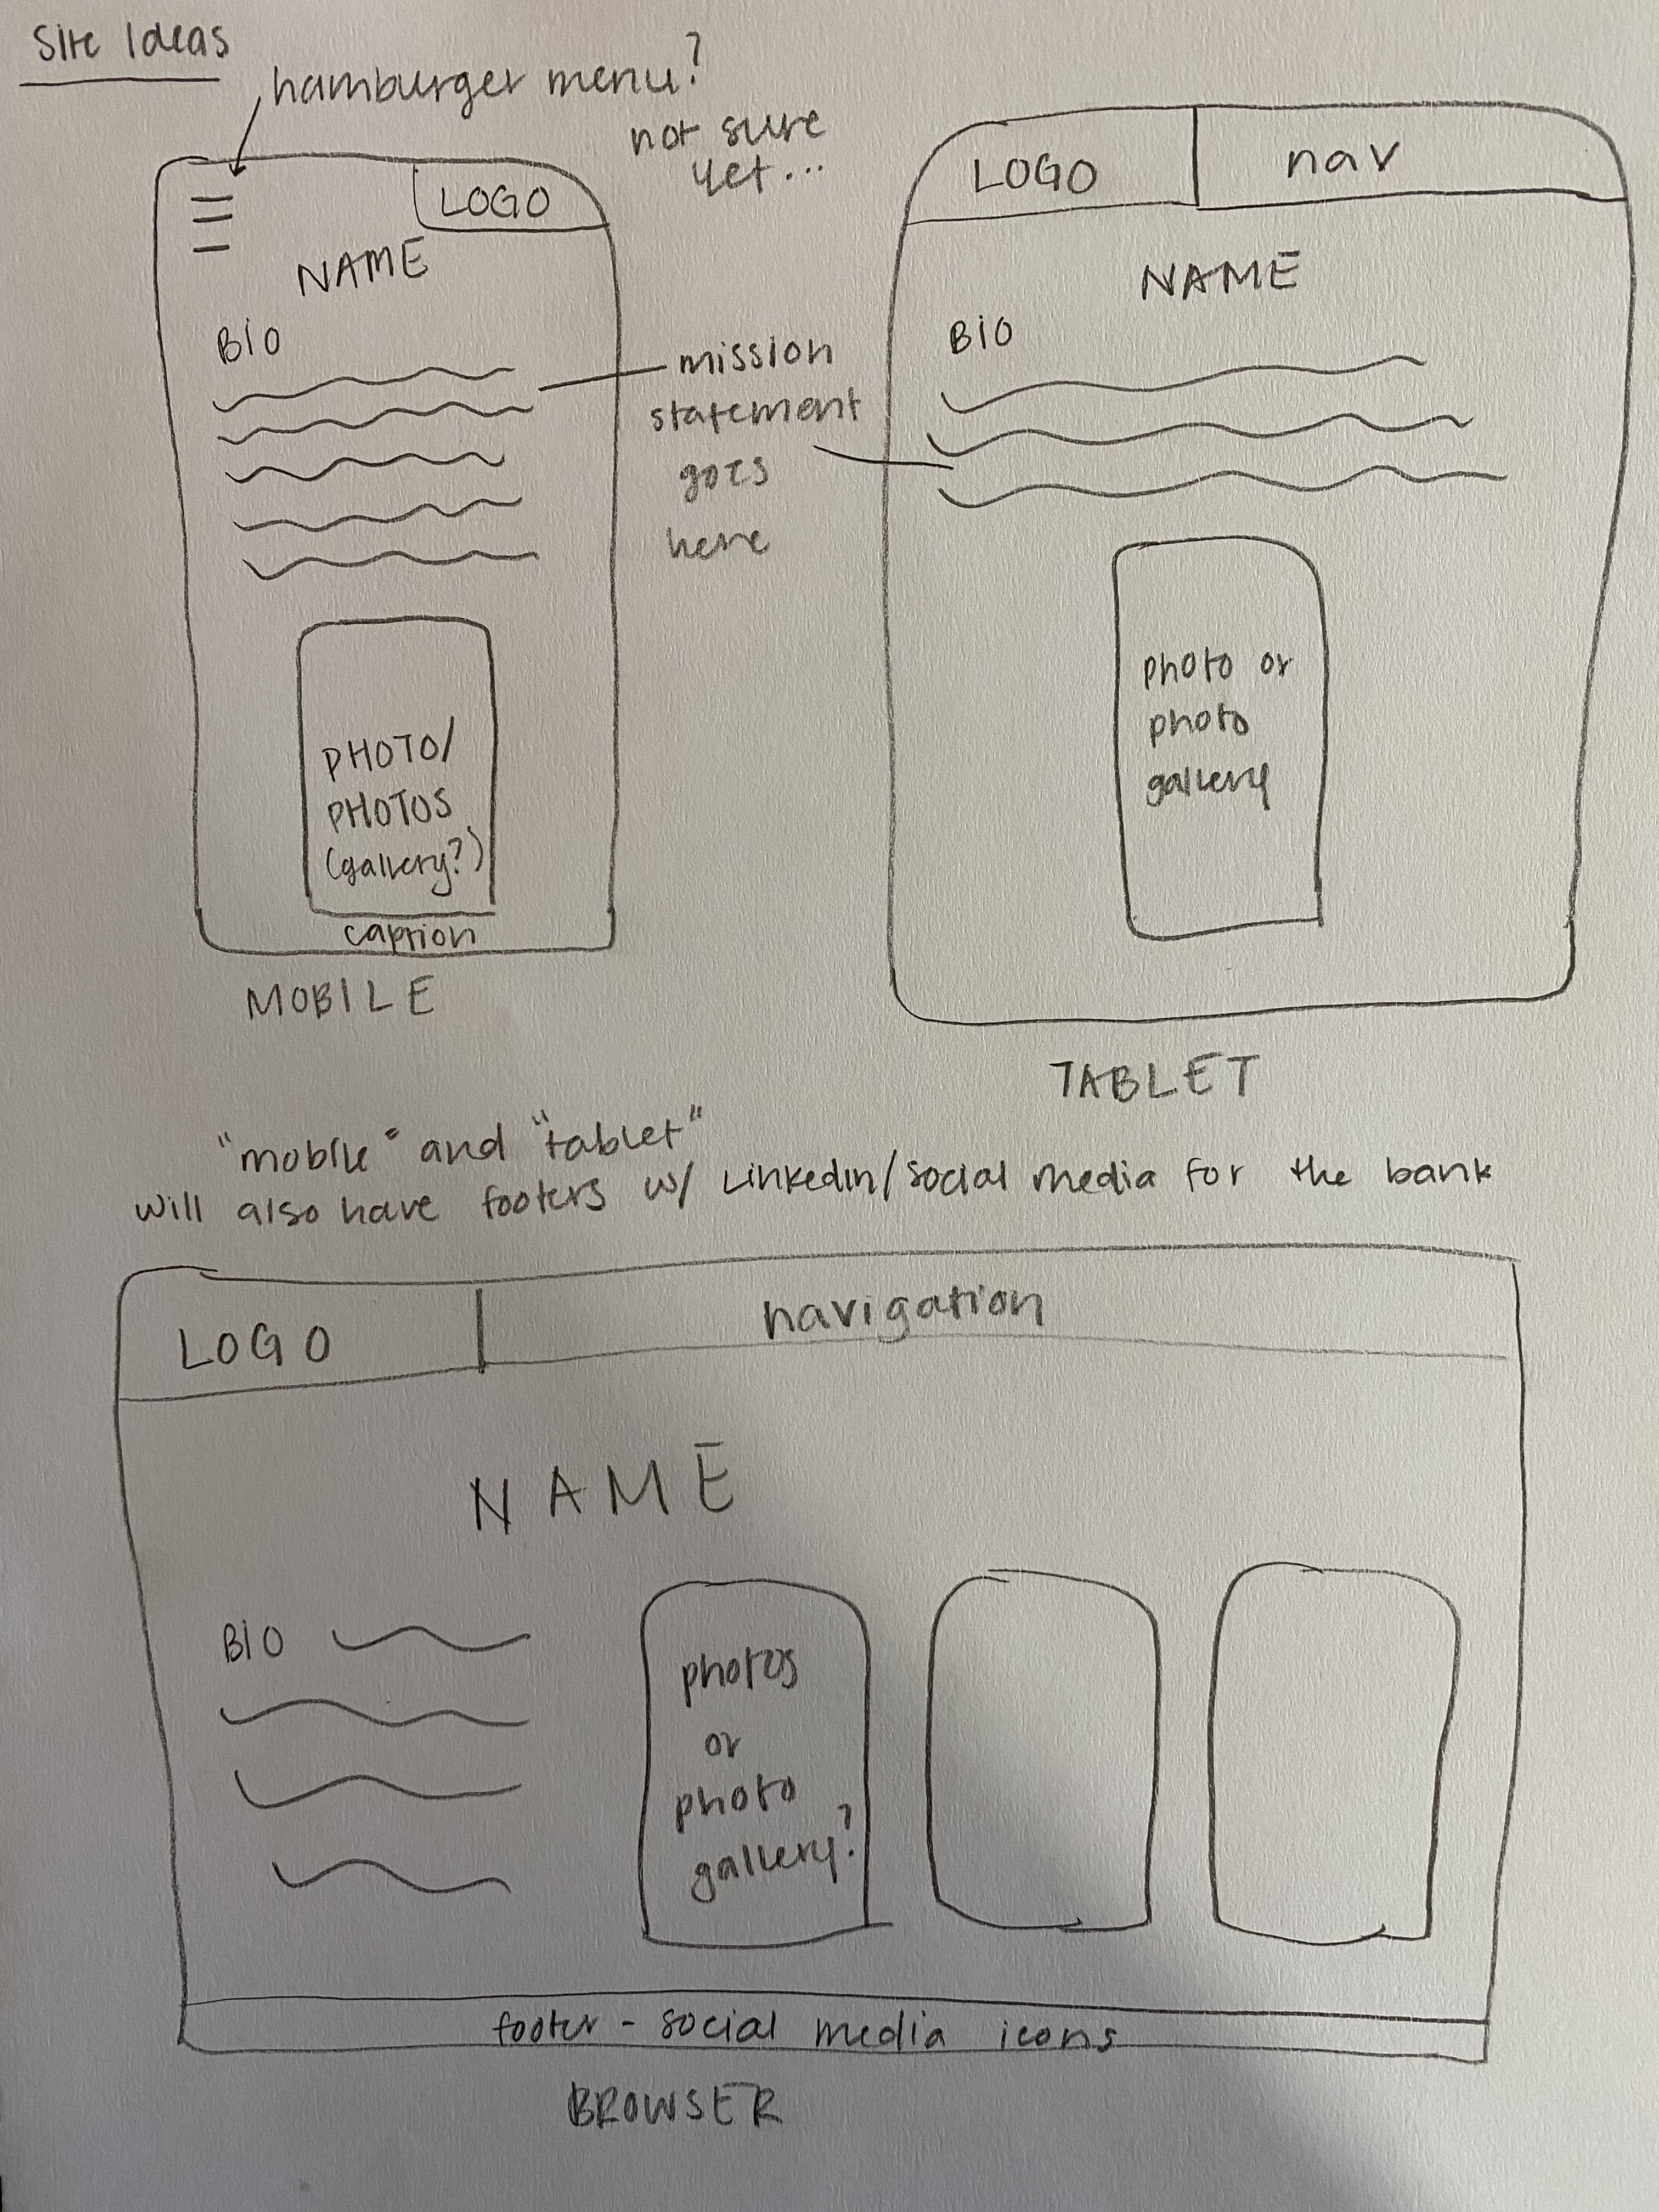 Site Ideas
hamburger menu?
not sure
yet...
LOGO
NAME
BIO
mission
statement
goes
here
PHOTO/
PHOTOS
(gallery?)
caption
MOBILE
LOGO
nav
NAME
BIO
photo or
photo
gallery
TABLET
"mobile" and "tablet"
will also have footers w/ LinkedIn/social media for the bank
LOGO
navigation
NAME
BIO
photos
or
photo
gallery?
footer - social media icons
BROWSER